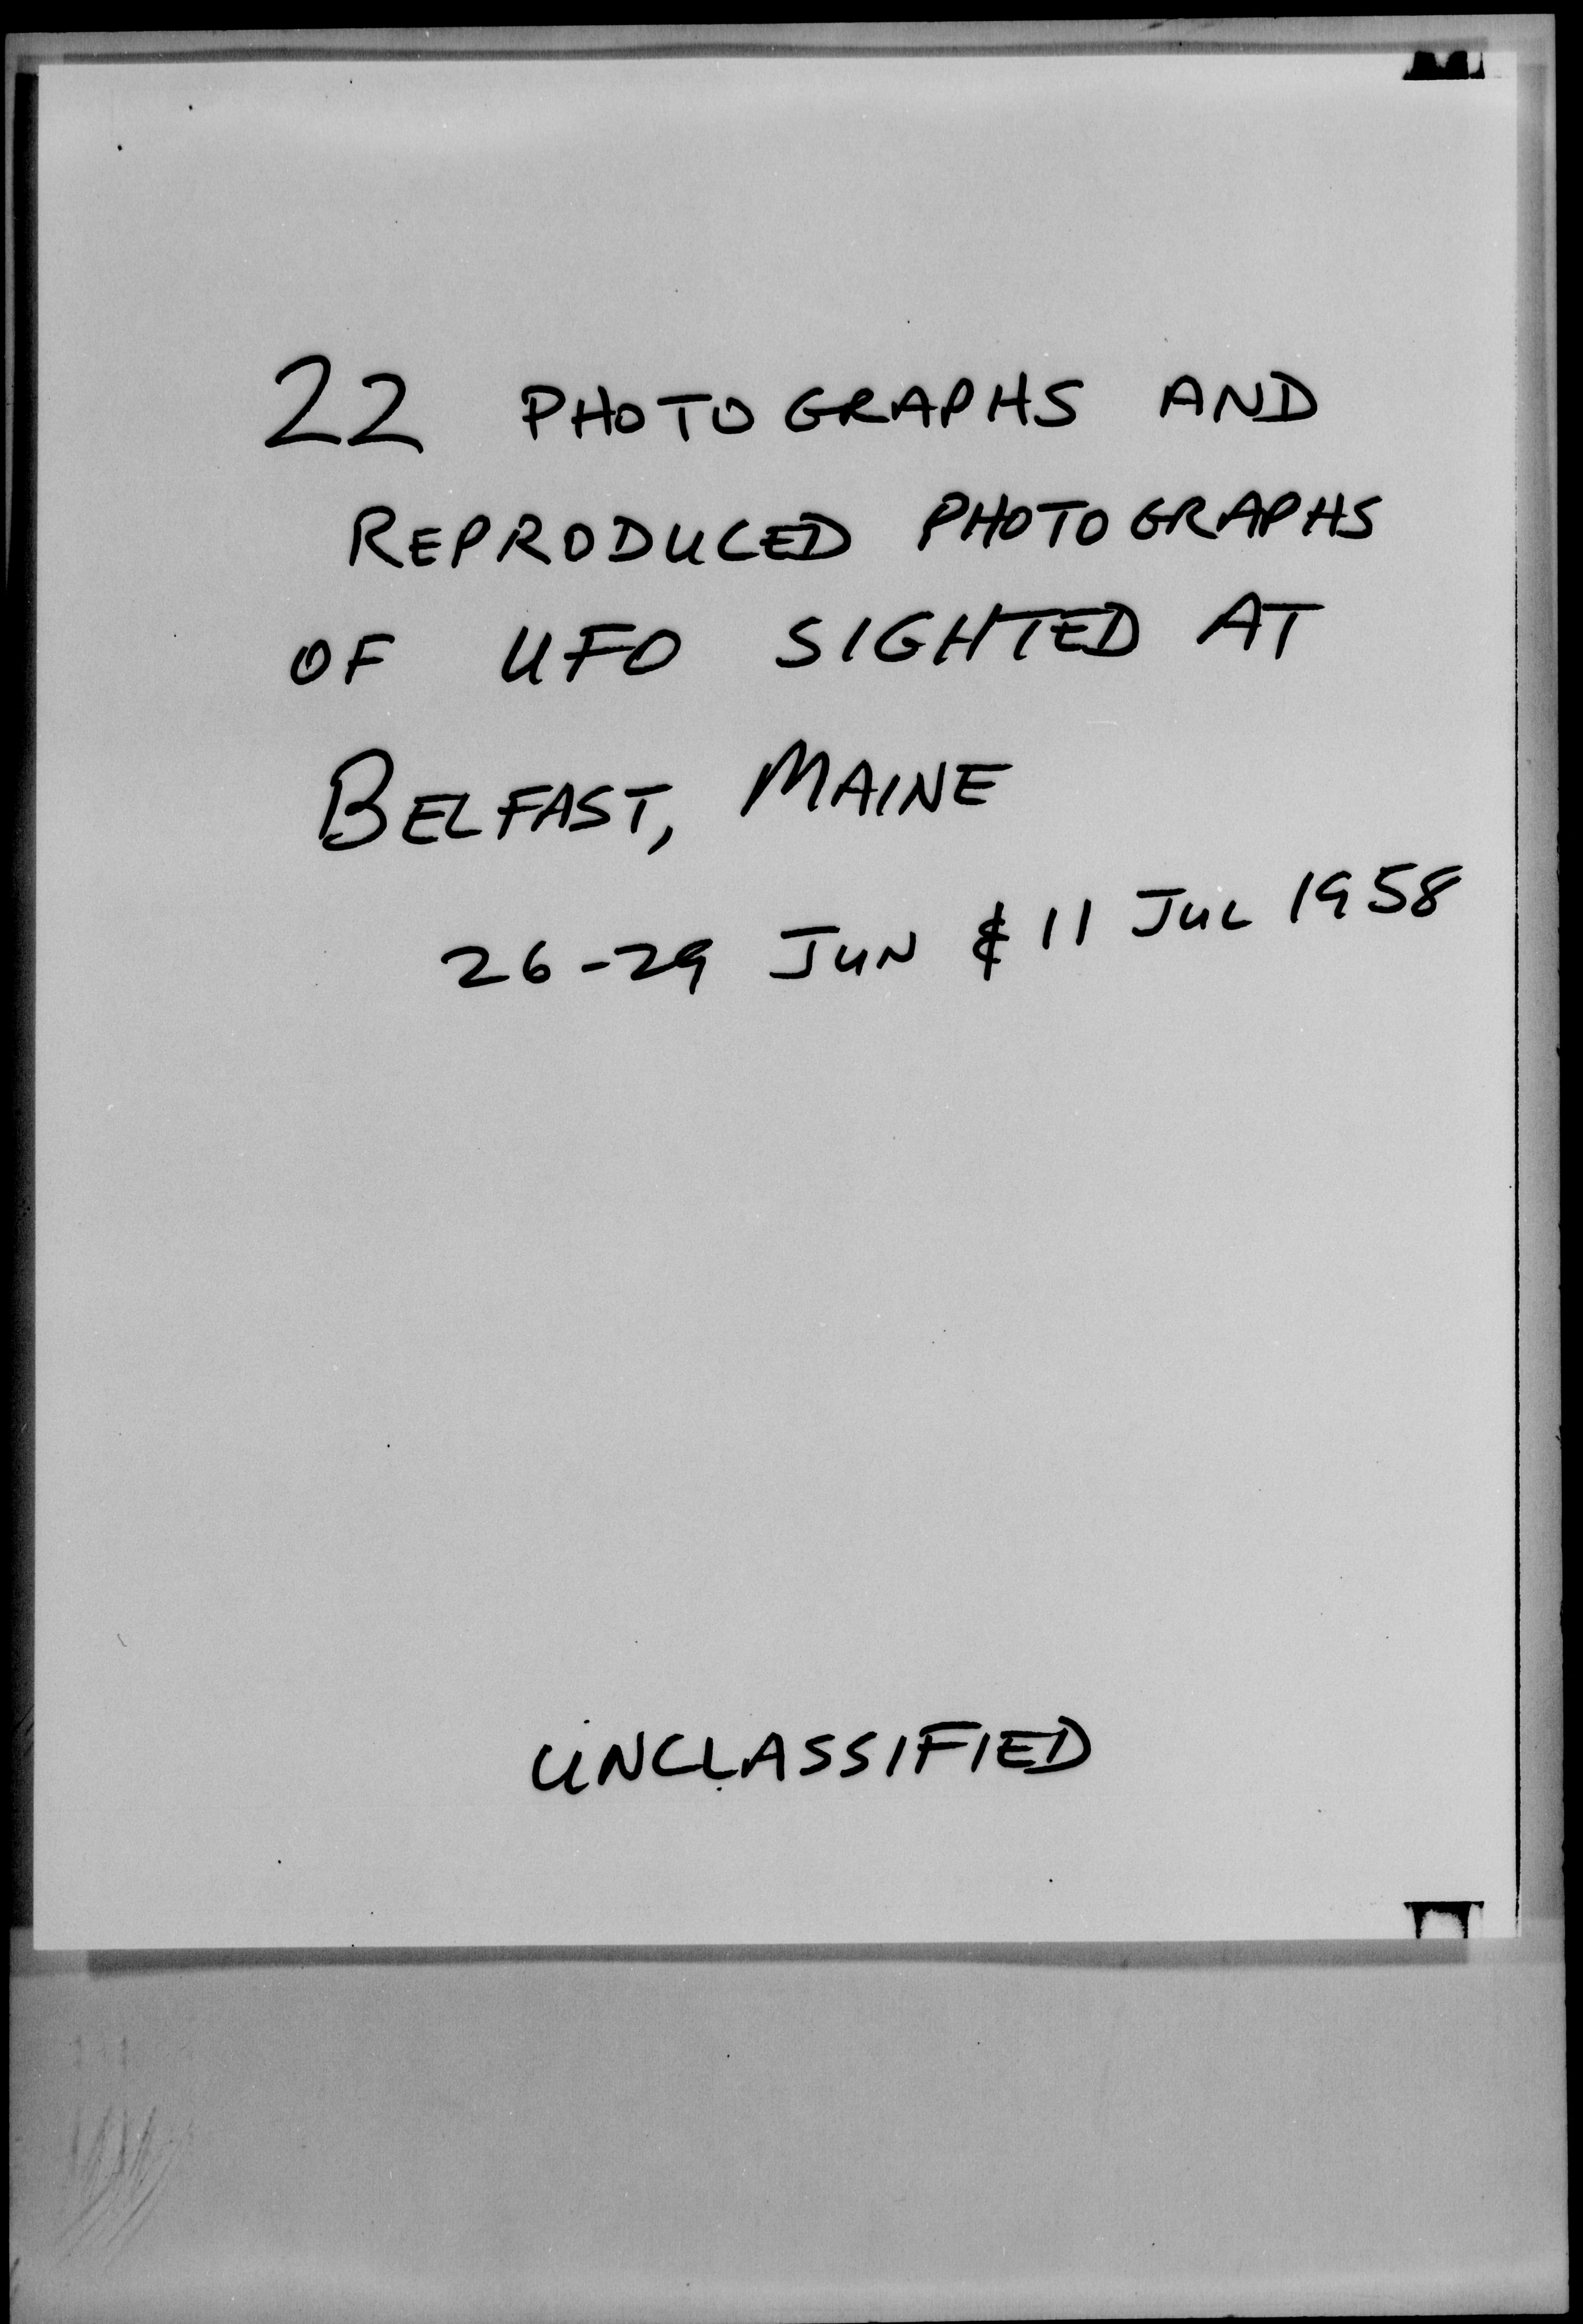 22 PHOTOGRAPHS AND
REPRODUCED PHOTOGRAPHS
OF UFO SIGHTED AT
BELFAST, MAINE
26-29 JUN & 11 JUL 1958
UNCLASSIFIED